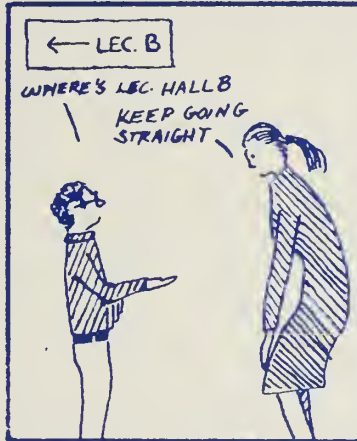 ← LEC. B
WHERE'S LEC. HALL B
KEEP GOING
STRAIGHT